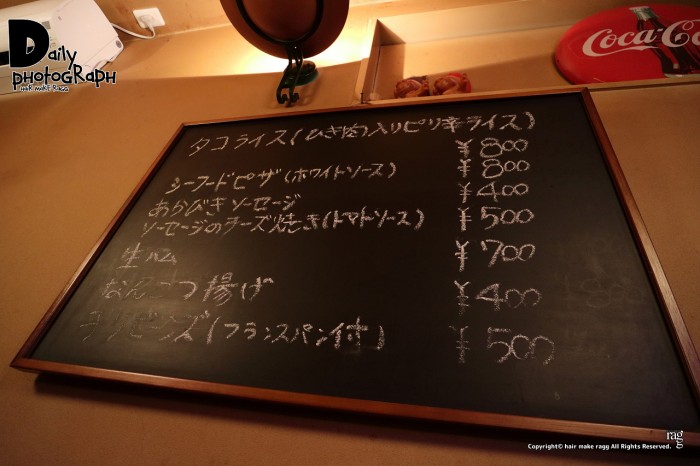 Daily
PHOTOGRAPH
HAIR MAKE RAGG
Coca-Cola
タコライス(ひき肉入りピリ辛ライス) ¥800
シーフードピザ(ホワイトソース) ¥800
あらびきソーセージ ¥400
ソーセージのチーズ焼き(トマトソース) ¥500
生ハム ¥700
なんこつ揚げ ¥400
チリビーンズ(フランスパン付) ¥500
ragg
Copyright© hair make ragg All Rights Reserved.